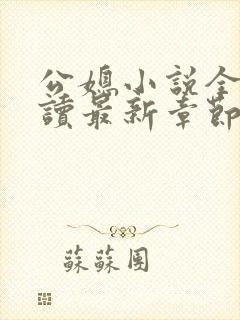 公媳小説全
讀最新章節
蘇蘇團